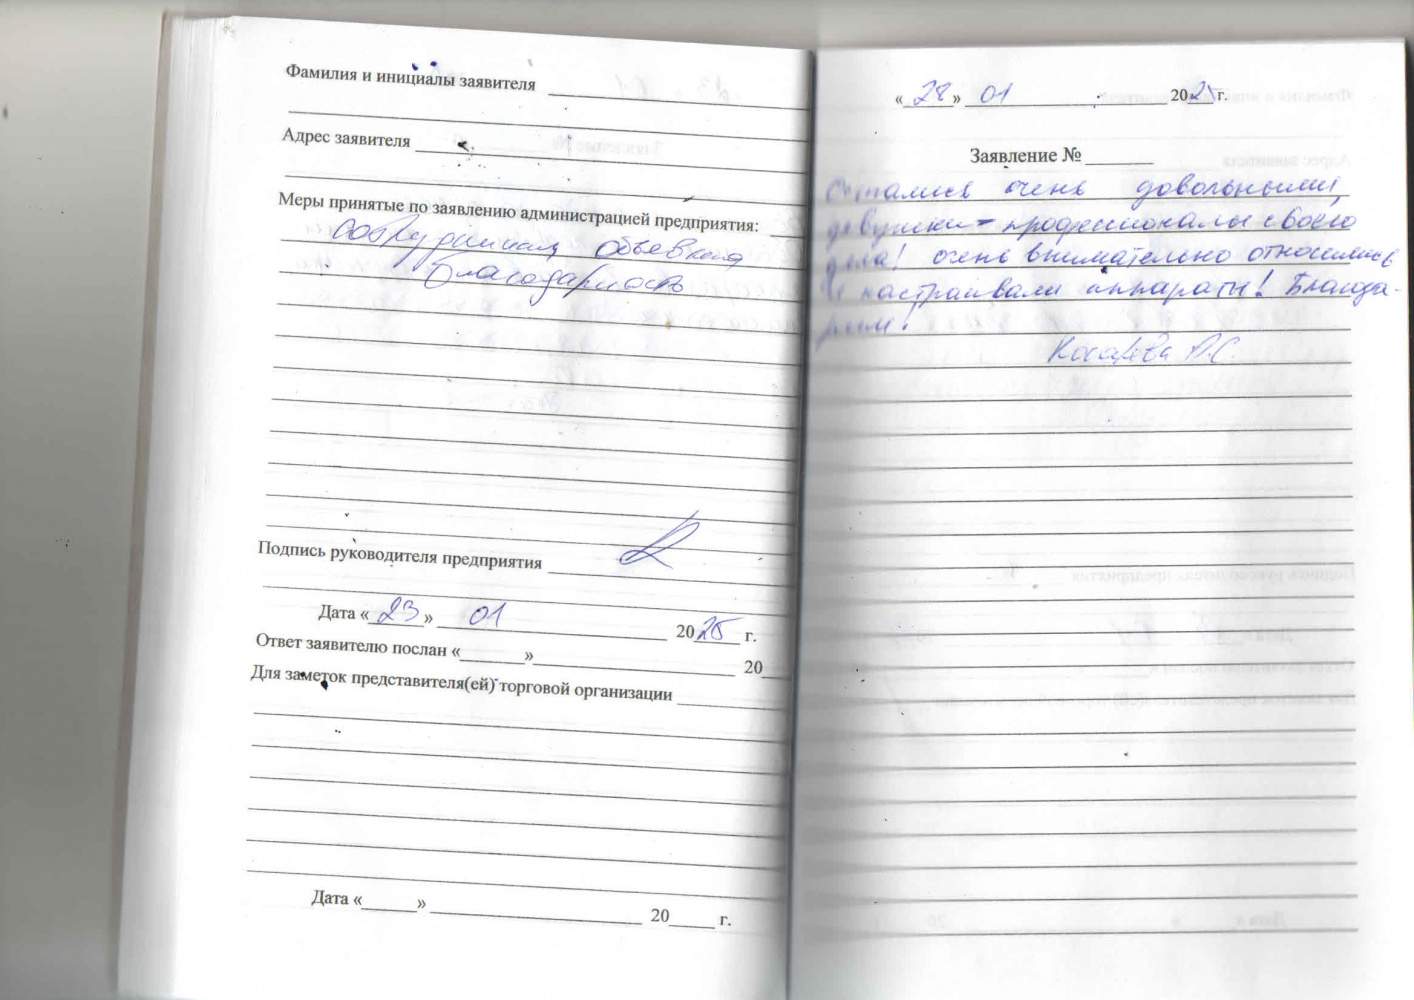 Фамилия и инициалы заявителя
Адрес заявителя
Меры принятые по заявлению администрацией предприятия:
сотрудникам объявлена
благодарность
Подпись руководителя предприятия
Дата «23» 01 2025 г.
Ответ заявителю послан «____»____ 20__
Для заметок представителя(ей) торговой организации
Дата «____» ____ 20____ г.
«28» 01 2025 г.
Заявление №
Остались очень довольными,
девушки - профессионалы своего
дела! очень внимательно относились
и настраивали аппараты! Благода-
рим!